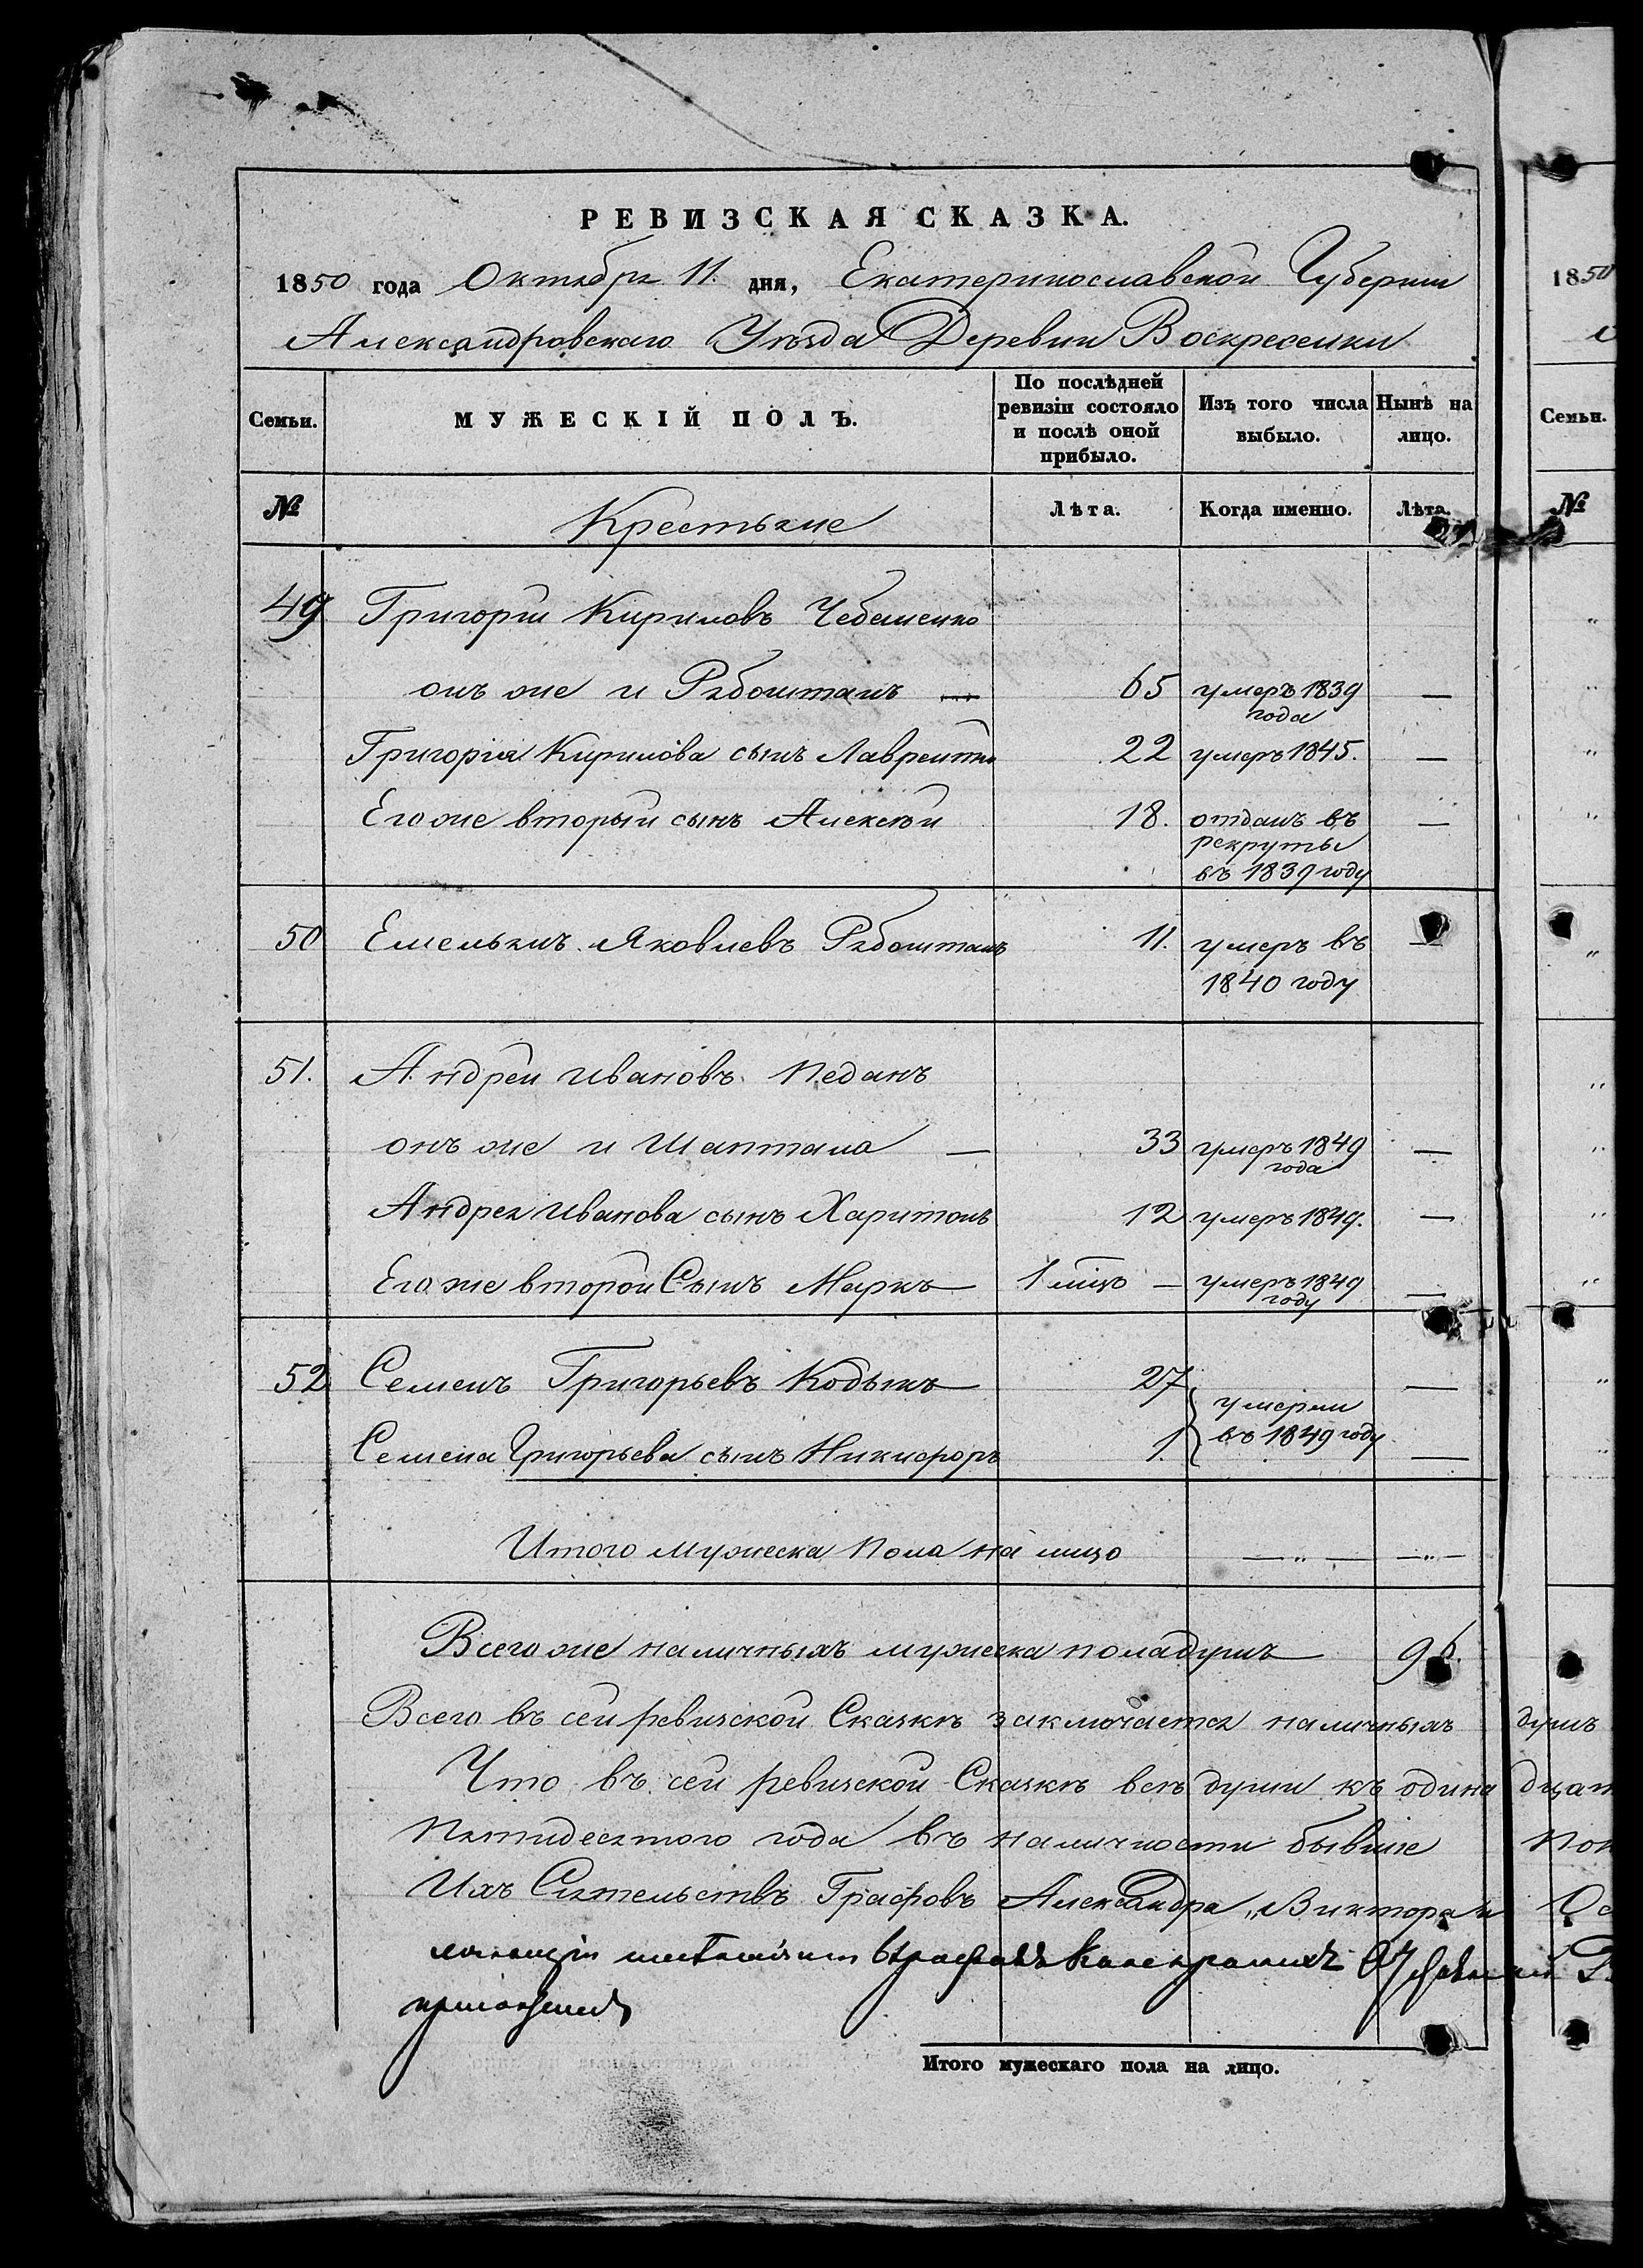 РЕВИЗСКАЯ СКАЗКА.
1850 года Октября 11. дня, Екатеринославской Губернии
Александровскаго Уѣзда Деревни Воскресенки
Семьи.
МУЖЕСКІЙ ПОЛЪ.
По послѣдней ревизіи состояло и послѣ оной прибыло.
Изъ того числа выбыло.
Нынѣ на лицо.
№
Крестьяне
Лѣта.
Когда именно.
Лѣта.
49 Григорій Кириловъ
онъ же и Рябоштанъ — 65 умеръ 1839 года —
Григорія Кирилова сынъ Лаврентій 22 умеръ 1845. —
Его же вторый сынъ Алексѣй 18. отданъ въ рекруты въ 1839 году —
50 Емельянъ Яковлевъ Рябоштанъ 11. умеръ въ 1840 году —
51. Андрей Ивановъ Педанъ
онъ же и Шаптала — 33 умеръ 1849 года —
Андрея Иванова сынъ Харитонъ 12 умеръ 1849. —
Его же второй Сынъ Маркъ 1 — умеръ 1849 году —
52 Семенъ Григорьевъ Кобыкъ 27 —
умерли въ 1849 году
Семена Григорьева сынъ Никифоръ 1. —
Итого мужеска пола на лицо — „ — — „ —
Всего же наличныхъ мужеска пола душъ 96.
Всего въ сей ревизской Сказкѣ заключается наличныхъ душъ
Что въ сей ревизской Сказкѣ всѣ души къ одина дцат
Пятидесятого года въ наличности бывшіе
Ихъ Сіятельствъ Графовъ Александра, Виктора и
Итого мужескаго пола на лицо.
1850
Семьи.
№